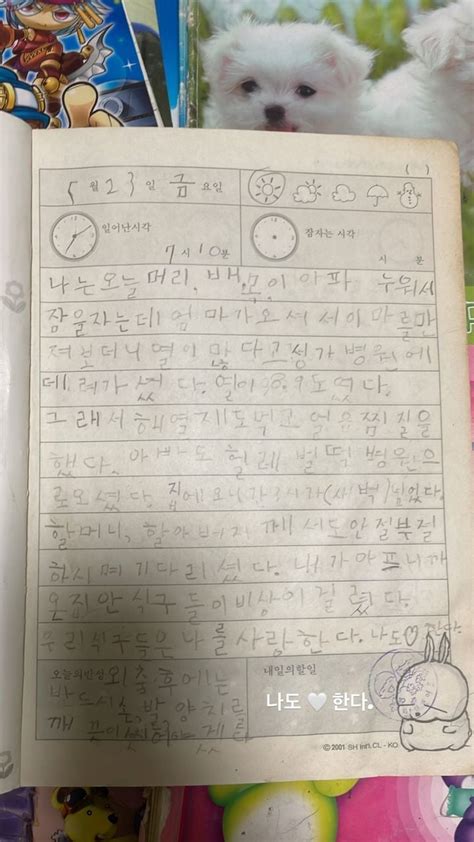 ( )
5 월 23 일 금 요일
일어난시각 7 시 10 분
잠자는 시각 시 분
나는 오늘 머리, 배, 목이 아파 누워서
잠을자는데 엄마가오셔서 이마를만
져보더니 열이 많다고하며 병원에
데려가셨다. 열이 38.9도였다.
그래서 해열제도먹고 얼음찜질을
했다. 아빠도 헐레벌떡 병원으
로오셨다. 집에오니까 3시가(새벽)넘었다.
할머니, 할아버지 께서도안절부절
하시며기다리셨다. 내가아프니까
온집안식구들이비상이걸렸다.
우리식구들은나를사랑한다. 나도♡한다.
오늘의반성 외출후에는
반드시손,발,양치를
깨끗이
내일의할일
나도 🤍 한다.
© 2001 SH Int'l.CL - KO